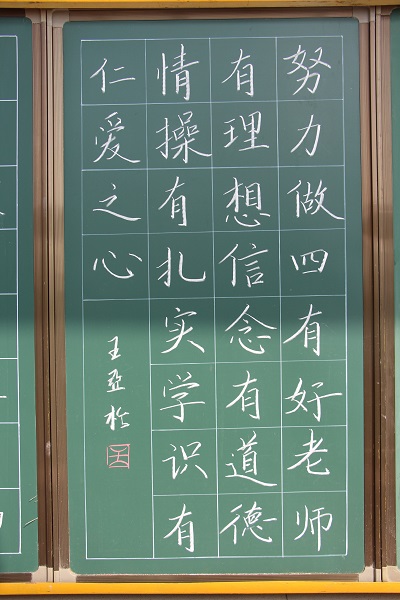 努力做四有好老师
有理想信念有道德
情操有扎实学识有
仁爱之心
王亚